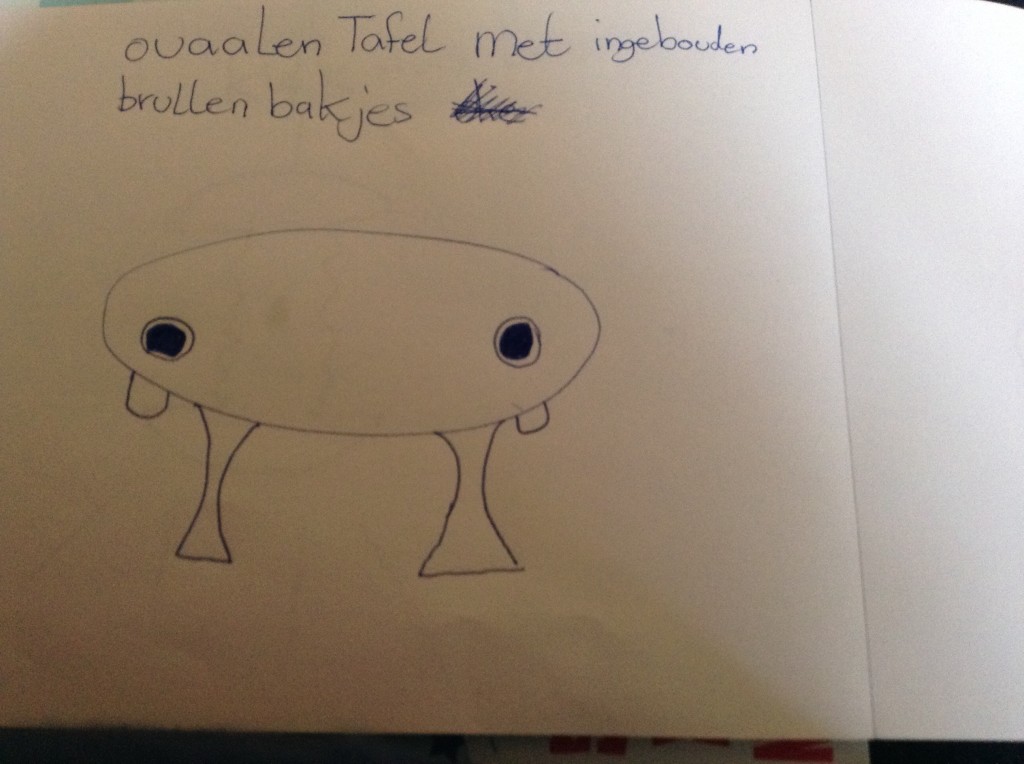 ovaalen Tafel met ingebouden
brullen bakjes